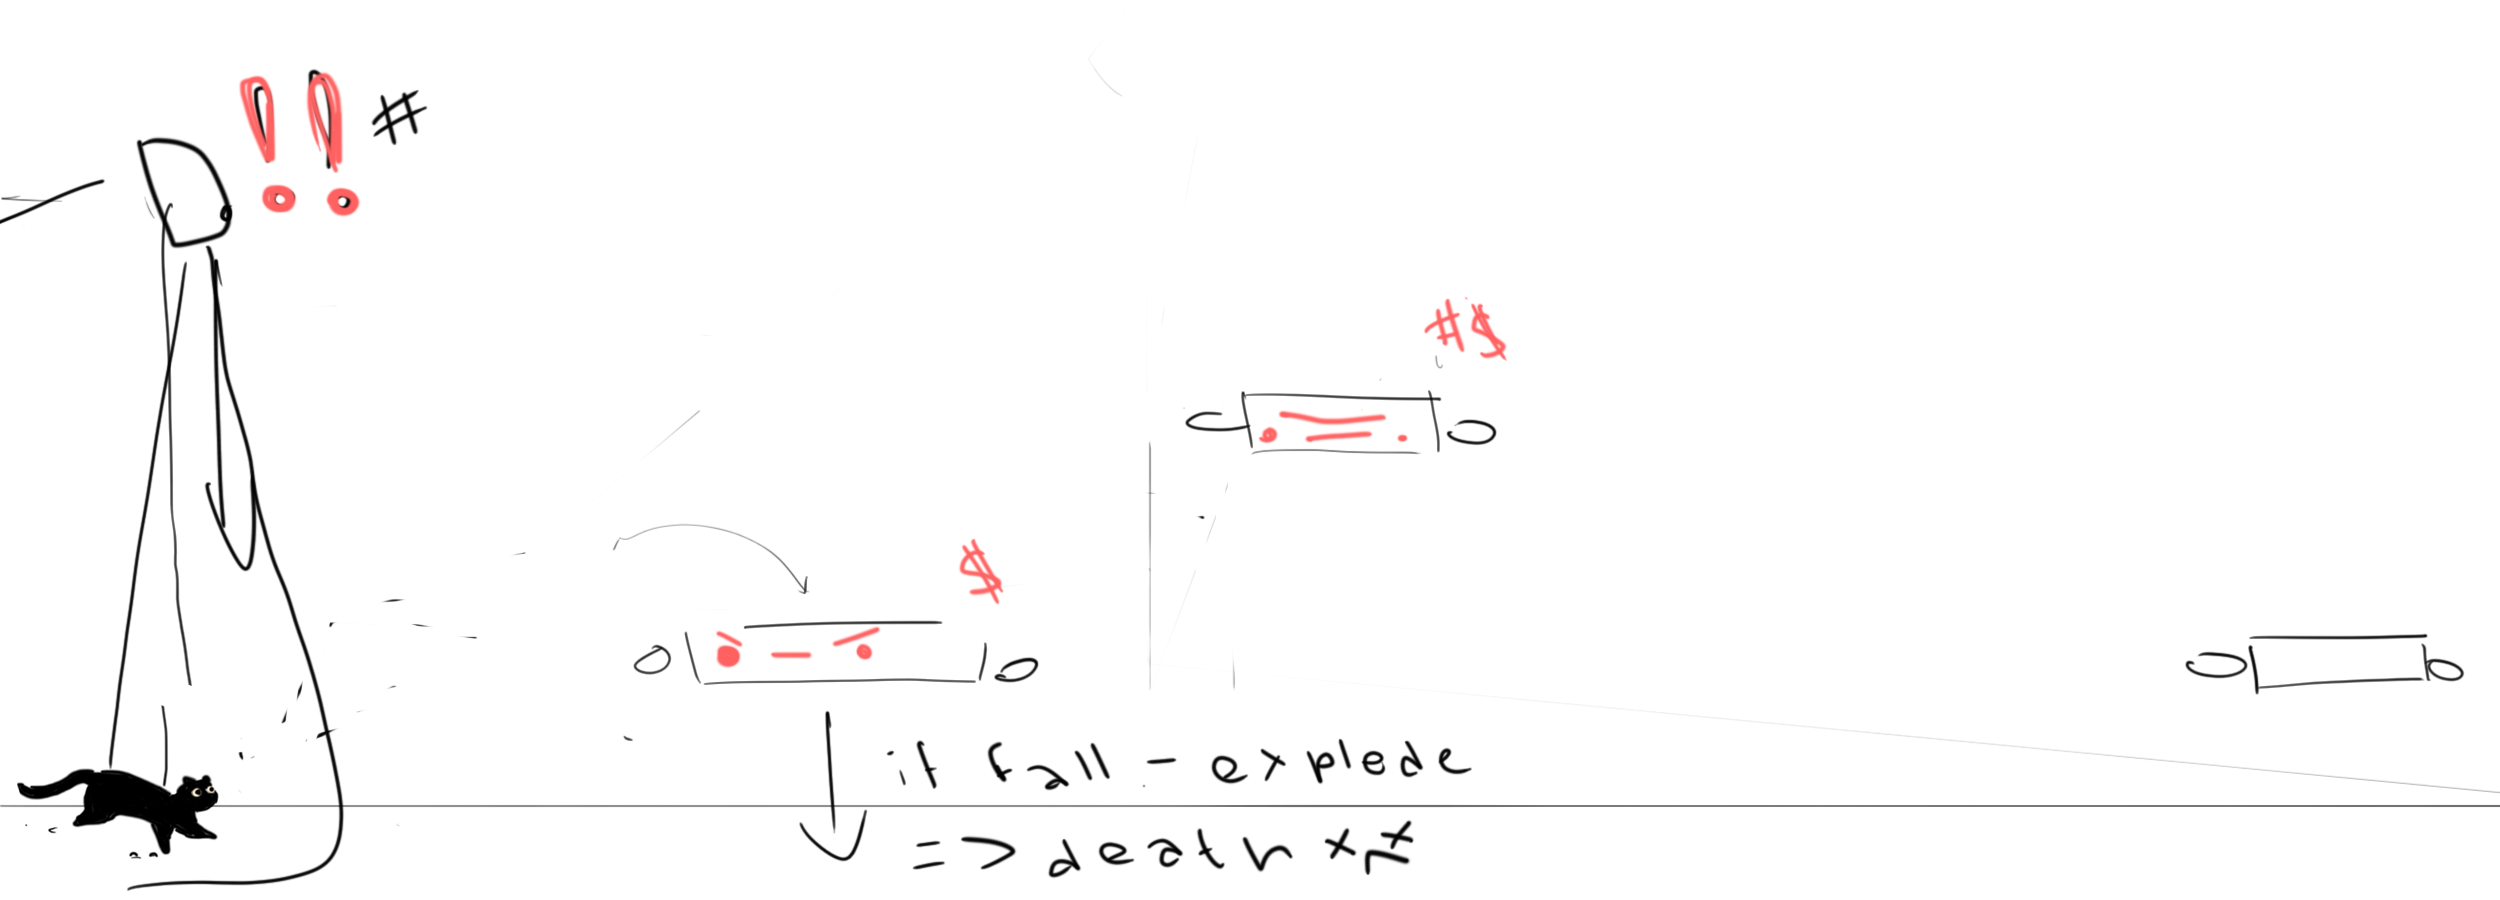 !! #
#$
$
if fall - explode
=> death